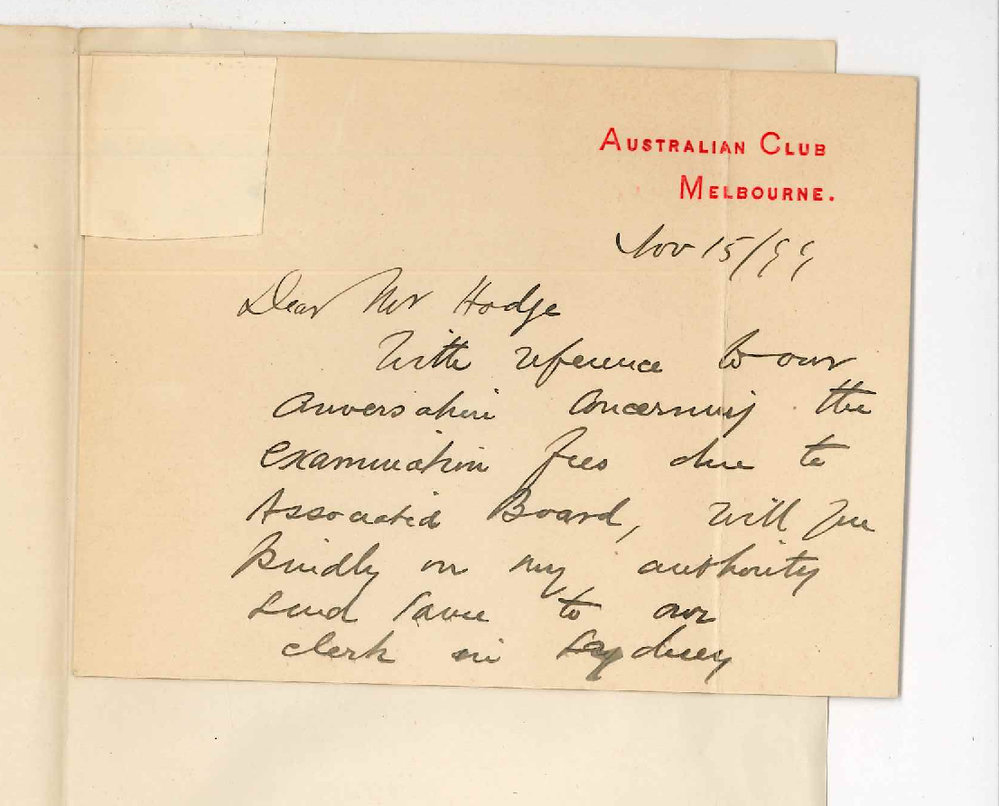 AUSTRALIAN CLUB
MELBOURNE.
Nov 15/99
Dear Mr Hodge
With reference to our
conversation concerning the
examination fees due to
Associated Board, will you
kindly on my authority
send same to our
clerk in Sydney